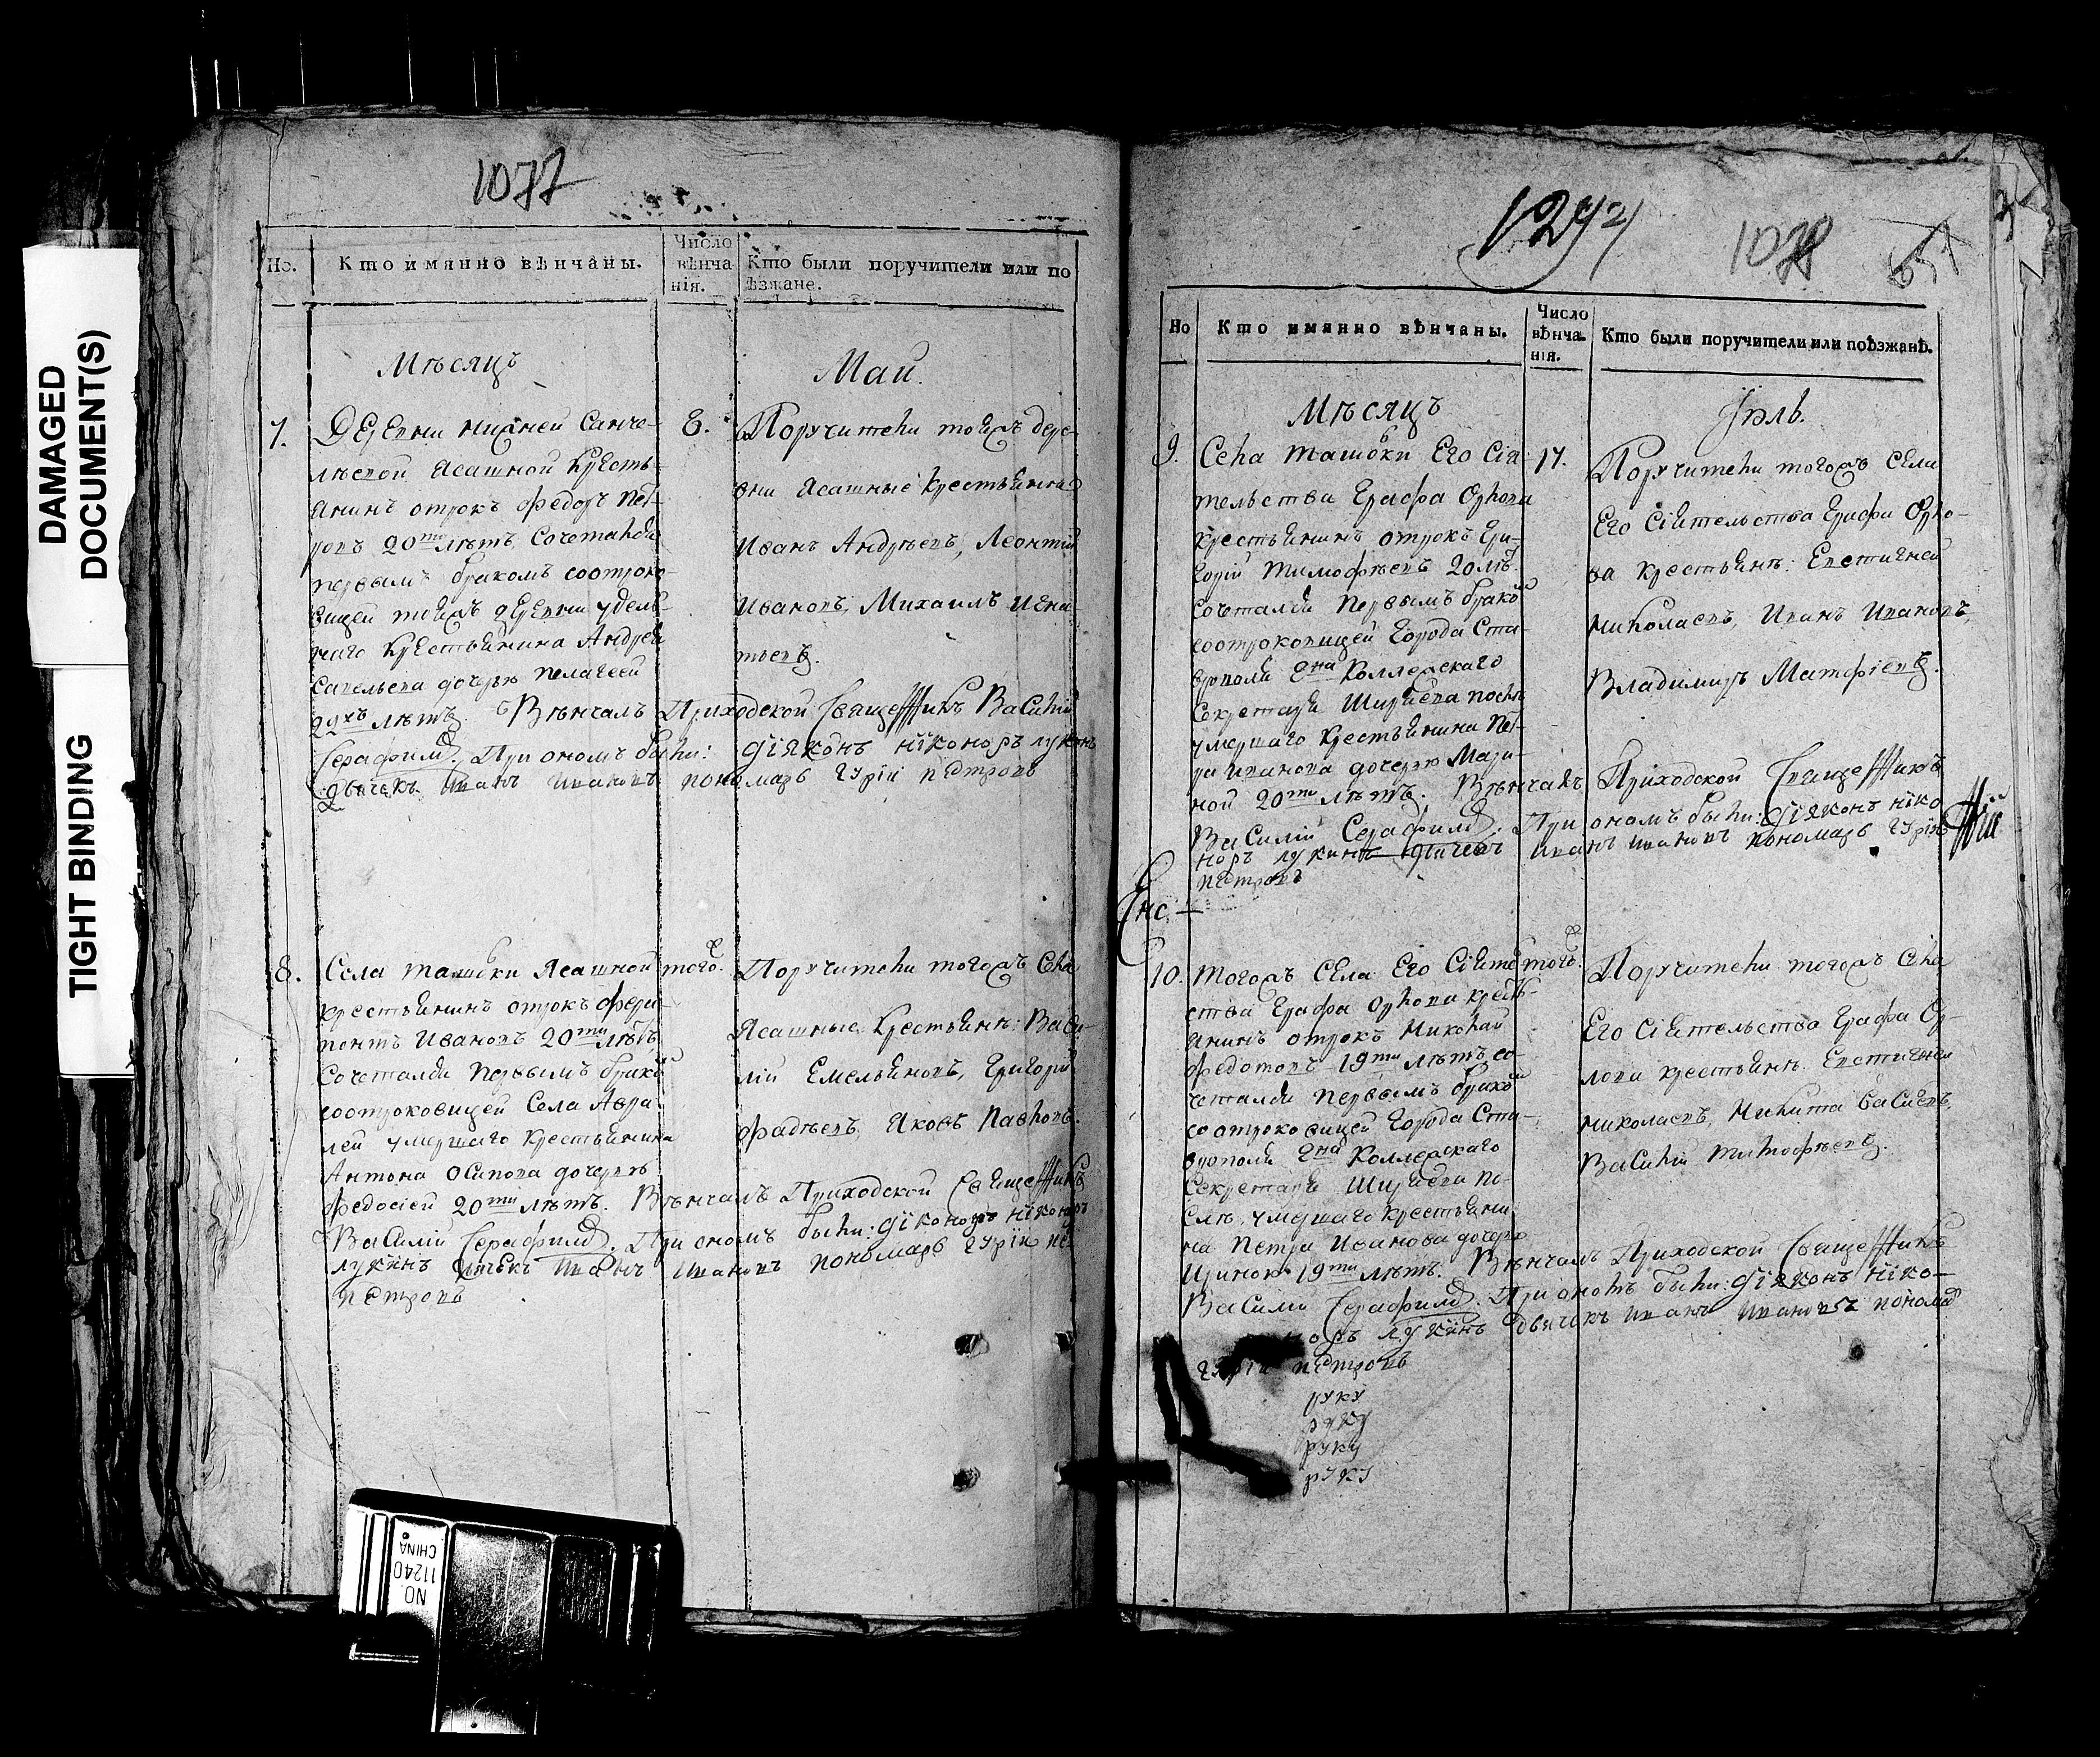 DAMAGED
DOCUMENT(S)
TIGHT BINDING
1077
Но.
Кто имянно вѣнчаны.
Число
вѣнча
нія.
Кто были поручители или по
ѣзжане.
Мѣсяцъ
Маій
7.
Деревни нижней Санче-
лѣевой Ясашной Кресть-
янинъ отрокъ Федоръ Пет-
ровъ 20ти лѣтъ, Сочетался
первымъ бракомъ соотроко-
вицей тояжъ деревни удель-
наго Крестьянина Андрея
Савельева дочерью Пелагеей
22хъ лѣтъ. Вѣнчалъ Приходской Священникъ Василій
Серафимъ. При ономъ были: діяконъ никоноръ лукинъ
дьячекъ Иванъ Ивановъ пономарь гурій петровъ
8.
Поручители тояжъ дере-
вни Ясашные крестьяня
Иванъ Андрѣевъ, Леонтій
Ивановъ, Михаилъ Игна-
тьевъ.
8.
Села ташовки Ясашной
крестьянинъ отрокъ Фера-
понтъ Ивановъ 20ти лѣтъ
Сочетался первымъ брако
соотроковицей Села Авра-
лей умершаго крестьянина
Антона Осипова дочерью
Федосіей 20ти лѣтъ. Вѣнчалъ Приходской Священникъ
Василій Серафимъ. При ономъ были: діяконъ никоноръ
лукинъ дьячекъ Иванъ Ивановъ пономарь гурій пе-
петровъ
того.
Поручители тогожъ Села
Ясашные крестьяня: Васи-
лій Емельяновъ, Григорій
Фадѣевъ, Яковъ Павловъ.
1294
1078
Но
Кто имянно вѣнчаны.
Число
вѣнча-
нія.
Кто были поручители или поѣзжанѣ.
Мѣсяцъ
Іюль.
9.
Села Ташовки Его Сія-
тельства Графа Орлова
крестьянинъ отрокъ Гри-
горій Тимофѣевъ 20 лѣ.
Сочетался первымъ брако
соотроковицей Города Ста-
врополя Гна Коллежскаго
Секретаря Ширяева послѣ
умершаго крестьянина Пет-
ра Иванова дочерью Мари-
ной 20ти лѣтъ. Вѣнчалъ Приходской Священникъ
Василій Серафимъ. При ономъ были: діяконъ нико
норъ лукинъ дьячекъ Иванъ Ивановъ пономарь гурій
петровъ
17.
Поручители тогожъ Села
Его Сіятельства Графа Орло-
ва крестьянъ: Евстигней
Николаевъ, Иванъ Ивановъ,
Владимиръ Матфіевъ.
10.
Тогожъ Села Его Сіятель
ства Графа Орлова кресть-
янинъ отрокъ Николай
Федотовъ 19ти лѣтъ, со-
четался первымъ брако
соотроковицей Города Ста-
врополя Гна Коллежскаго
Секретаря Ширяева по-
слѣ, умершаго крестьяни
на Петра Иванова дочерью
Ириною 19ти лѣтъ. Вѣнчалъ Приходской Священникъ
Василій Серафимъ. При ономъ были: діяконъ нико-
норъ лукинъ дьячекъ Иванъ Ивановъ пономар
гурій петровъ
руку
руку
руку
руку
того.
Поручители тогожъ Села
Его Сіятельства Графа Ор-
лова крестьянъ. Евстигней
Николаевъ, Никита Васиевъ,
Василій Тимофѣевъ.
NO.
11240
CHINA